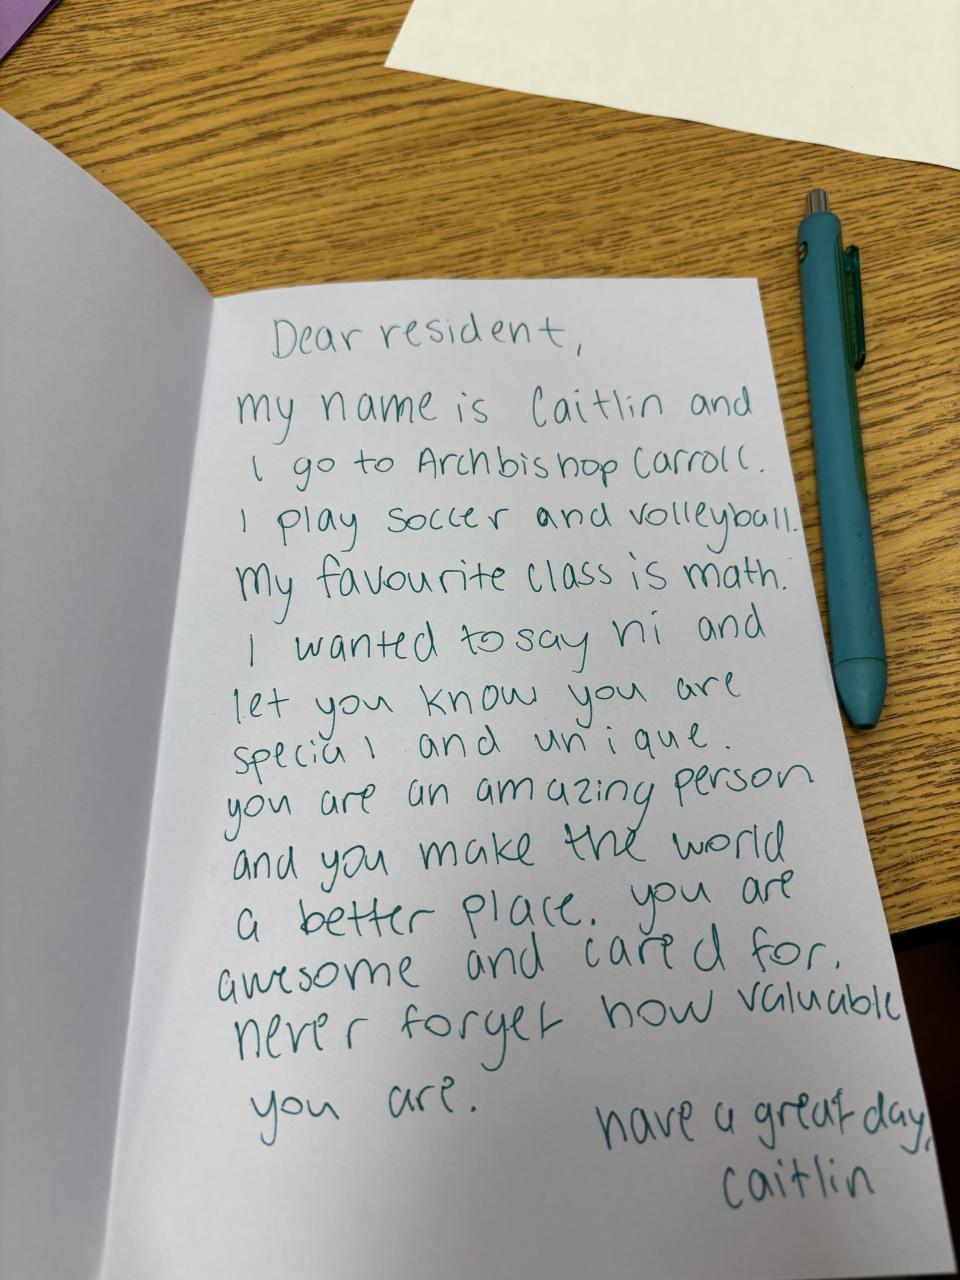 Dear resident,
my name is Caitlin and
I go to Archbishop Carroll.
I play soccer and volleyball.
My favourite class is math.
I wanted to say hi and
let you know you are
special and unique.
you are an amazing person
and you make the world
a better place. you are
awesome and cared for.
never forget how valuable
you are.
have a great day,
caitlin